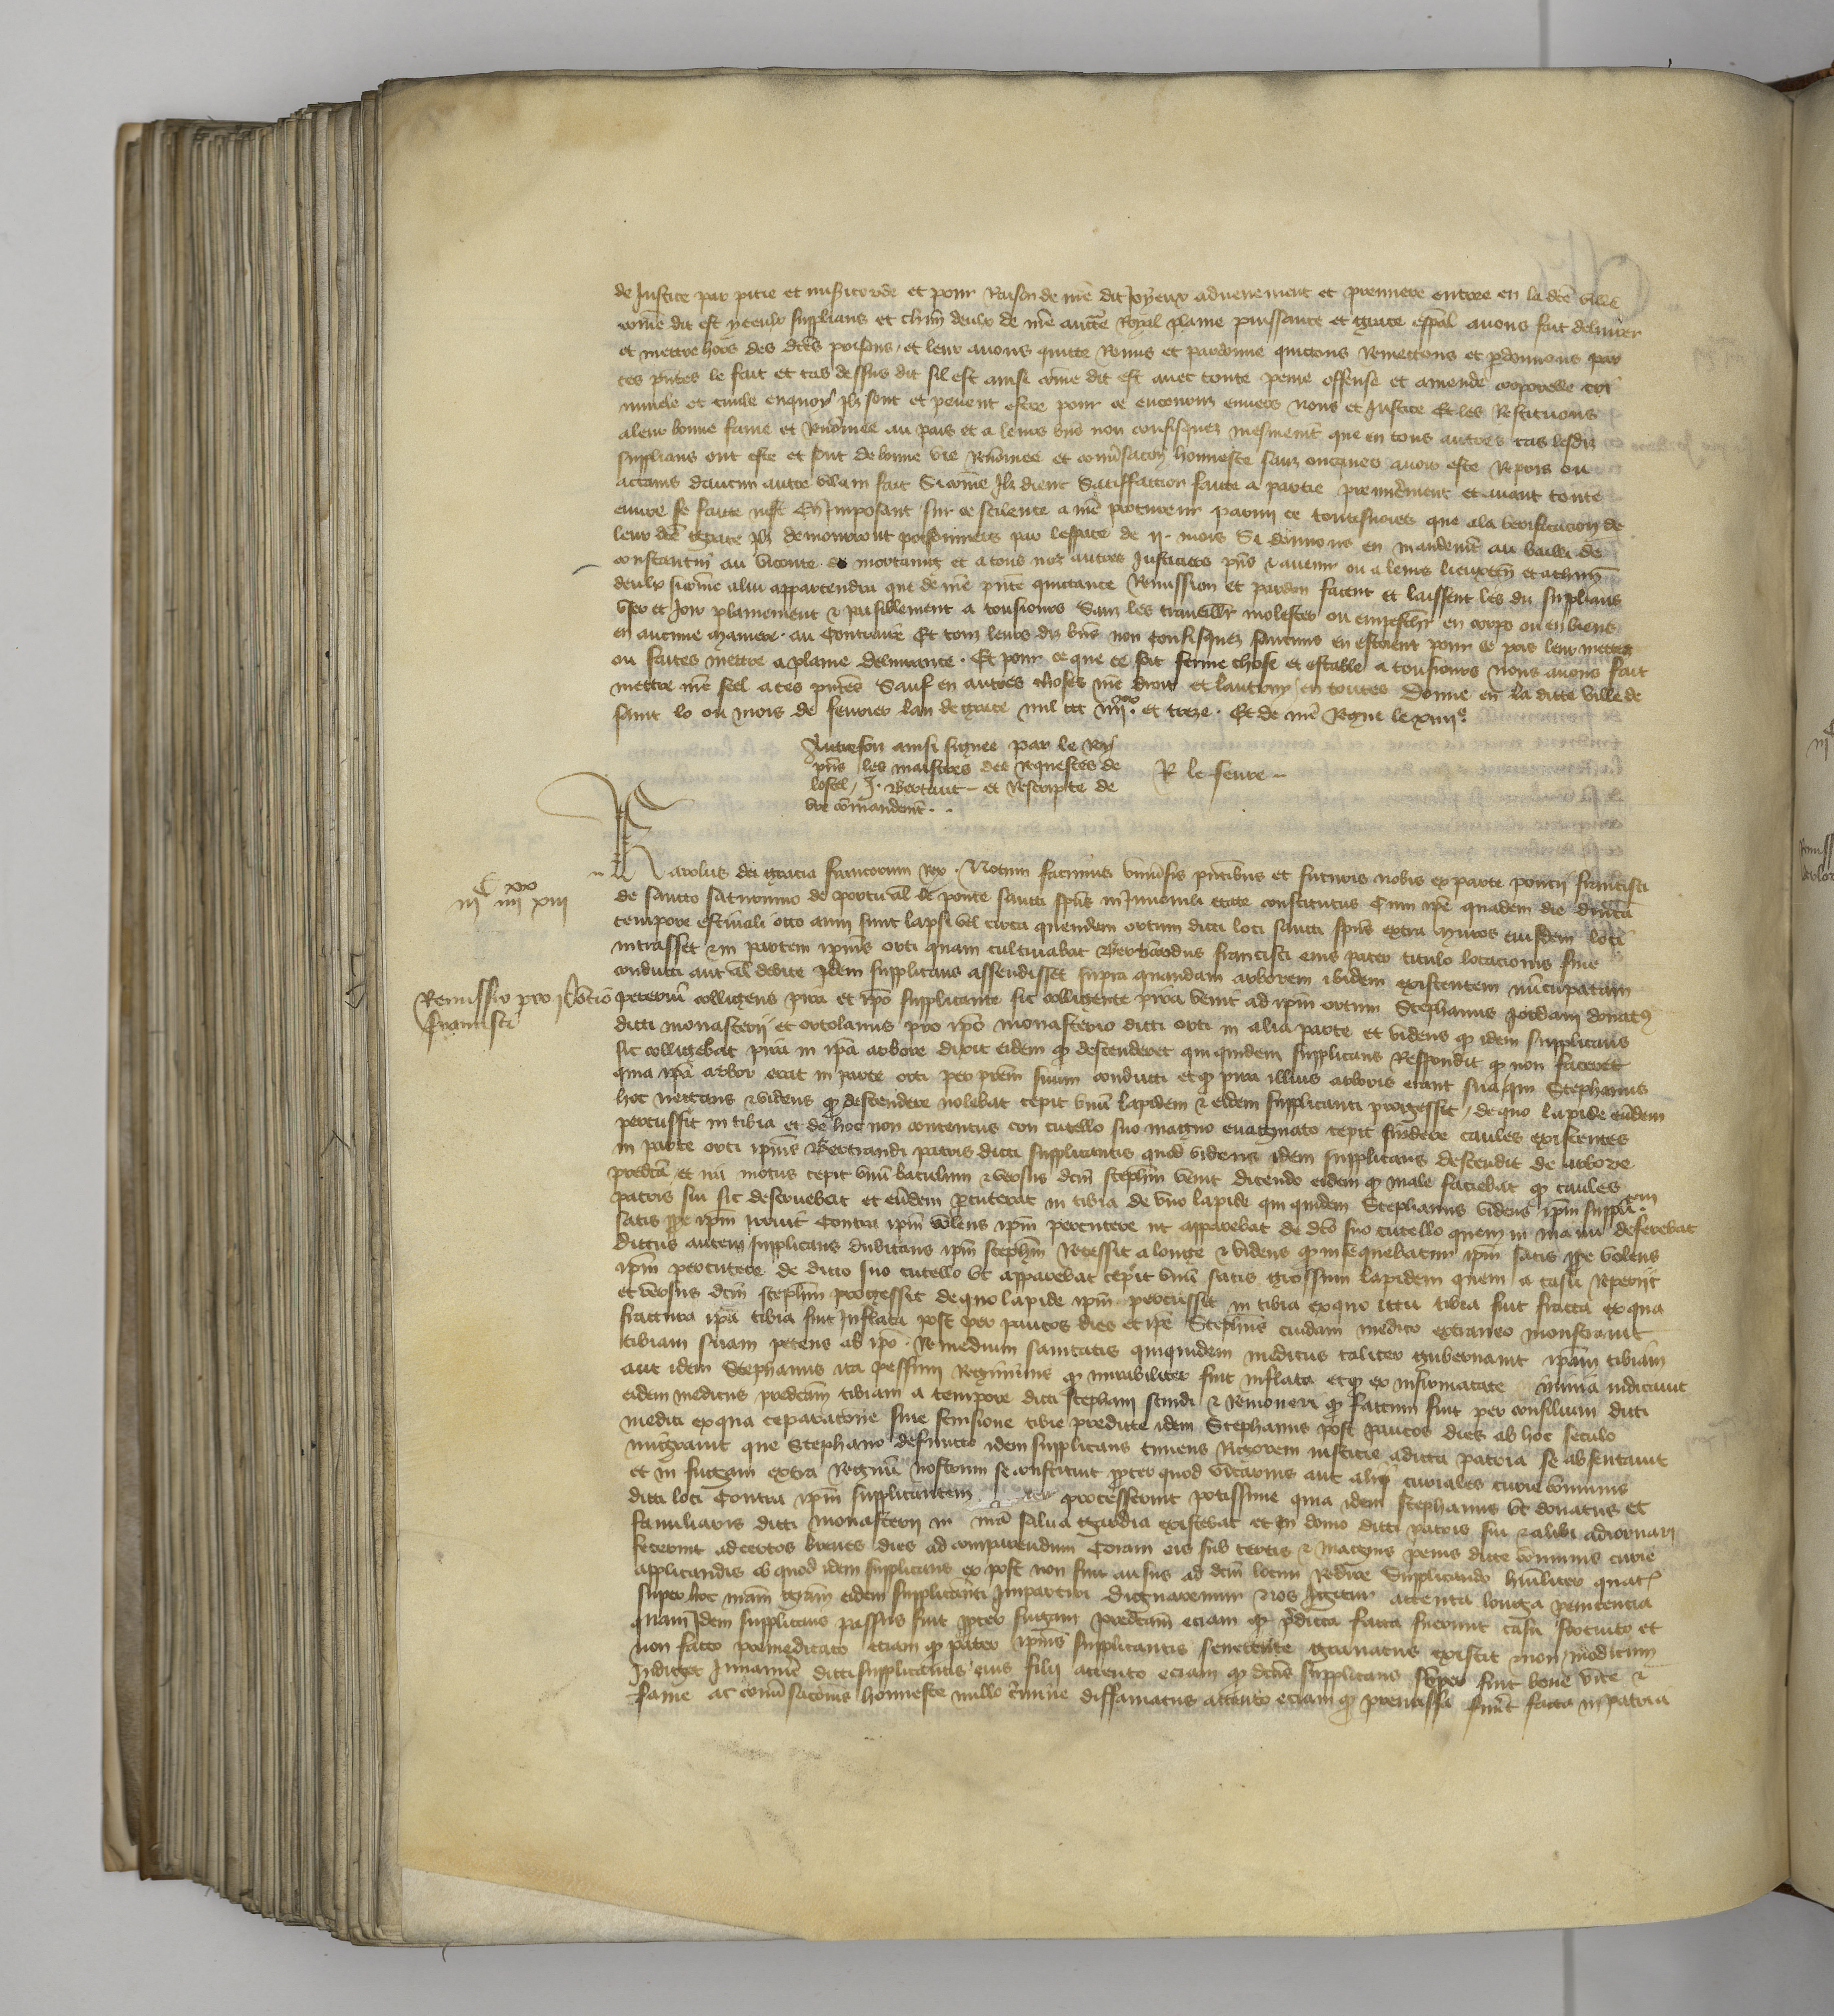 de Justice par pitie et misericorde et pour Raison de nre dit Joyeux advenement et premiere entree en la dcte ville
comme dit est yceulx supplians et chun deulx de nre auctte Royal plaine puissance et grace espal avons fait delivrer
et mettre hors des dctes prisons, et leur avons quitte Remis et pardonne quictons Remettons et pdonnons par
ces pntes le fait et cas dessus dit sil est ainsi come dit est avec toute peine offense et amende corporelle cri
minele et civile enquoy ilz sont et pevent estre pour ce encouruz envers Nous et Justice Et les Restituons
a leur bonne fame et Renomee au pais et a leurs bns non confisquez mesmemt que en tous autres cas lesdiz
supplians ont este et sont de bonne vie Renomee et conversacon honneste sanz oncques avoir este Repris ou
actains daucun autre vilain fait Sicome Ilz dient Satiffaction faicte a partie premierement et avant toute
euvre se faicte nest En Imposant sur ce scilence a nre procureur parmi ce toutesvoies que ala verificacion de
leur dcte grace ilz demourront prisonniers par lespace de ij. mois Si donnons en mandemt au bailli de
constantin au viconte de mortaing et a tous noz autres Justiciers pns & avenir ou a leurs lieuxten et achun
deulx sicome alui appartendra que de nre pnte quictance Remission et pardon facent et laissent les diz supplians
user et Joir plainement & paisiblement a tousiours Sanz les travaillr molester ou empeschr en corps ou en biens
en aucune maniere . au Contraire Et touz leurs diz bns non confisquez saucuns en estoient pour ce pris leur mettez
ou faites mettre a plaine delivrance . Et pour ce que ce soit ferme chose et estable a tousiours Nous avons fait
mettre nre seel a ces pntes Sauf en autres choses nre droit et lautruy en toutes Donne en la ditte ville de
saint lo ou mois de fevrier lan de grace mil ccc iiij xx. et treze . Et de nre Regne le xiiije.
Autresfoiz ainsi signee par le Roy
pns les maistres des requestes de
lostel, J. Bertaut - et Rescripte de
vre comandemt . .
R le fevre --
Karolus dei gracia francorum Rex . Notum facimus univsis pntibus et futuris nobis ex parte poncij francisci
iij C iiij xx xiii
de sancto saturnino de portu al de ponte sancti sps in Juvenili etate constitutus Cum ipe quadem die
tempore estivali octo anni sunt lapsi vel circa quendam ortum dicti loci sancti sps extra muros eiusdem loci
intrasset & in partem ipius orti quam cultivabat Bertrandus francisci eius pater titulo locacionis sive
conducti aut al debite Idem supplicans assendisset supra quandam arborem ibidem existentem nuncupatam
Remissio pro poncio
francisci
pererium colligens pira et ipo supplicante sic colligente pira venit ad ipm ortum Stephanus Jordani donatus
dicti monasterij et ortolanus pro ipo monasterio dicti orti in alia parte et videns q idem supplicans
sic colligebat pira in ipa arbore dixit eidem q descenderet qui quidem supplicans Respondit q non faceret
quia ipa arbor erat in parte orti per prem suum conducti et q pira illius arboris erant sua, qui Stephanus
hoc & videns q descendere nolebat cepit unu lapidem & eidem supplicanti progessit, de quo lapide eudem
percussit in tibia et de hoc non contentus con cutello suo magno evaginato cepit sindere caules existentes
in parte orti ipius Bertrandi patris dicti supplicantis quod videns idem supplicans descendit de arbore
predcta et motus cepit unu baculum & versus dcm stephm venit dicendo eidem q male faciebat q caules
patris sui sic destruebat et eudem pcuterat in tibia de uno lapide qui quidem Stephanus videns ipm suppltem
satis ppe ipm irruit Contra ipm volens ipm percutere ut apparebat de dco suo cutello quem in manu deferebat
dictus autem supplicans dubitans ipm stephm Recessit a longe & videns q insequebatur ipm satis ppe volens
ipm percutere de dicto suo cutello ut apparebat cepit unu satis grossum lapidem quem a casu Reperijt
et versus dcm stephm progessit de quo lapide ipm percussit in tibia ex quo ictu tibia fuit fracta ex qua
fractura ipa tibia fuit Inflata post per paucos dies et ipe Stephus cuidam medico extraneo monstravit
tibiam suam petens ab ipo . Remedium sanitatis quiquidem medicus taliter gubernavit ipam tibiam
aut idem Stephanus ita pessimi Regiminis q mirabiliter fuit inflata et q ex infirmatate nimia indicavit
eidem medicus predctam tibiam a tempore dicti stephani scindi & Removeri q factum fuit per consilium dicti
medici ex qua ceparacione sive scinsione tibie predicte idem Stephanus post paucos dies ab hoc seculo
migravit que Stephano defuncto idem supplicans timens Rigorem iusticie a dicta patria se absentavit
et in fugam extra Regnu nostrum se constituit ppter quod vicarius aut alij curiales curie comunis
dicti loci Contra ipm supplicantem processerunt potissime quia idem stephanus ut donatus et
familiaris dicti monasterij in nra salva gardia existebat et in domo dicti patris sui & alibi adiornari
fecerunt ad certos breves dies ad comparendum Coram eis sub certis & magnis penis dicte comunis curie
applicandis ob quod idem supplicans ex post non fuit ausus ad dcm locum Redire Supplicando humiliter quatr
super hoc nram gram eidem supplicanti Impartiri dignaremur Nos Igitur attenta longa penitencia
quam Idem supplicans passus fuit ppter fugam predctam eciam q pdicta facta fuerunt casu fortuito et
non facto premeditato eciam q pater ipius supplicantis senectute gravatus existit & non modicum
Indiget Juvamie dicti supplicantis eius filij attento eciam q dcus supplicans semper fuit bone vite &
fame ac conversacois honneste nullo crimine diffamatus attento eciam q premissa fuert facta in patria